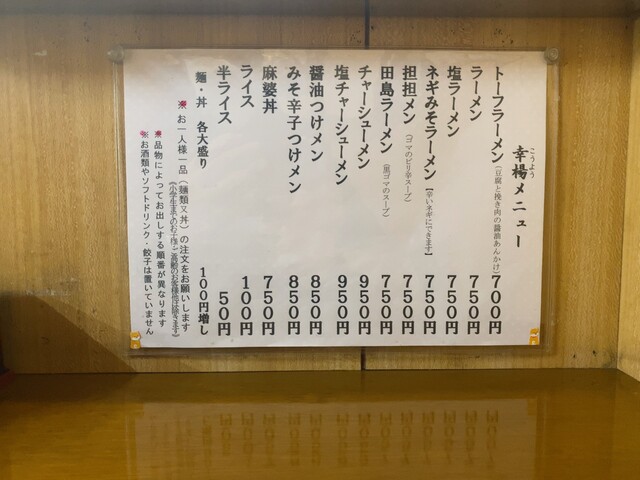 幸楊メニュー
こうよう
トーフラーメン(豆腐と挽き肉の醤油あんかけ)700円
ラーメン 750円
塩ラーメン 750円
ネギみそラーメン【辛いネギにできます】750円
担担メン(ゴマのピリ辛スープ)750円
田島ラーメン(黒ゴマのスープ)750円
チャーシューメン 950円
塩チャーシューメン 950円
醤油つけメン 850円
みそ辛子つけメン 850円
麻婆丼 750円
ライス 100円
半ライス 50円
麺・丼 各大盛り 100円増し
※ お一人様一品(麺類又丼)の注文をお願いします
(小学生までのお子様・高齢のお客様他は除きます)
※ 品物によってお出しする順番が異なります
※ お酒類やソフトドリンク・餃子は置いていません